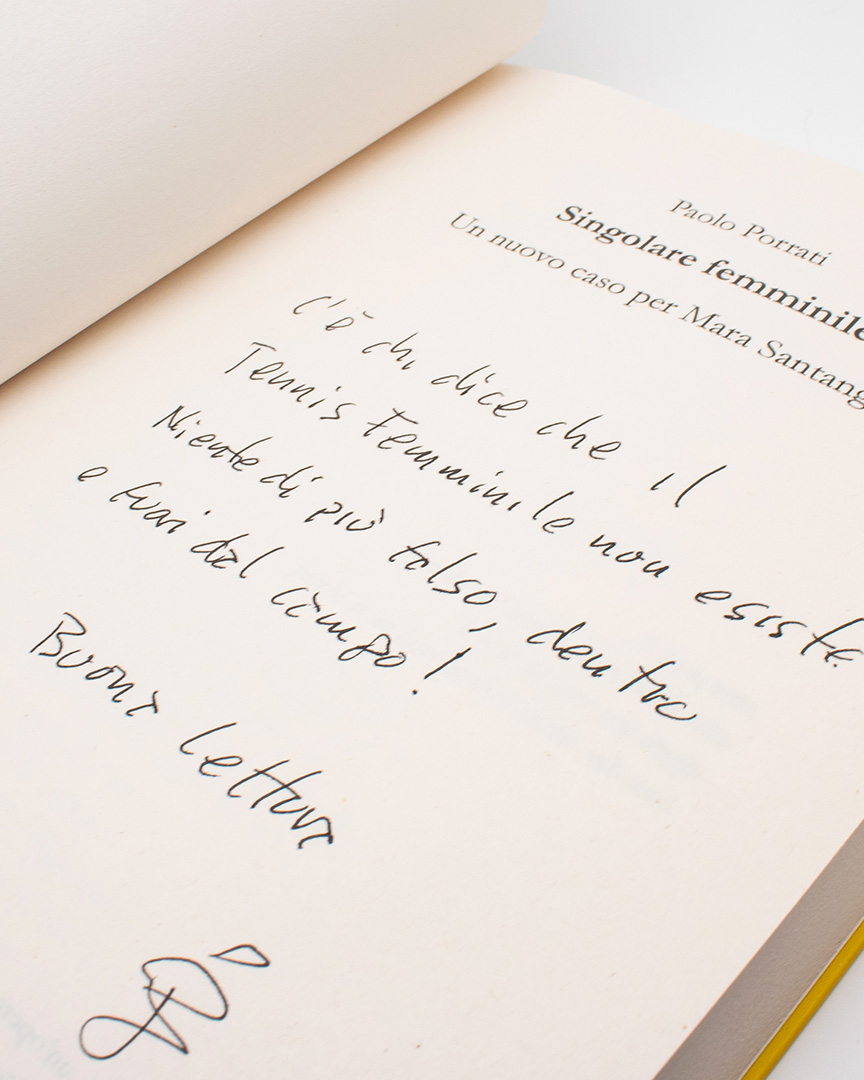 Paolo Porrati
Singolare femminile
Un nuovo caso per Mara Santang
C'è chi dice che il
Tennis Femminile non esiste.
Niente di più falso, dentro
e fuori dal campo!
Buona lettura